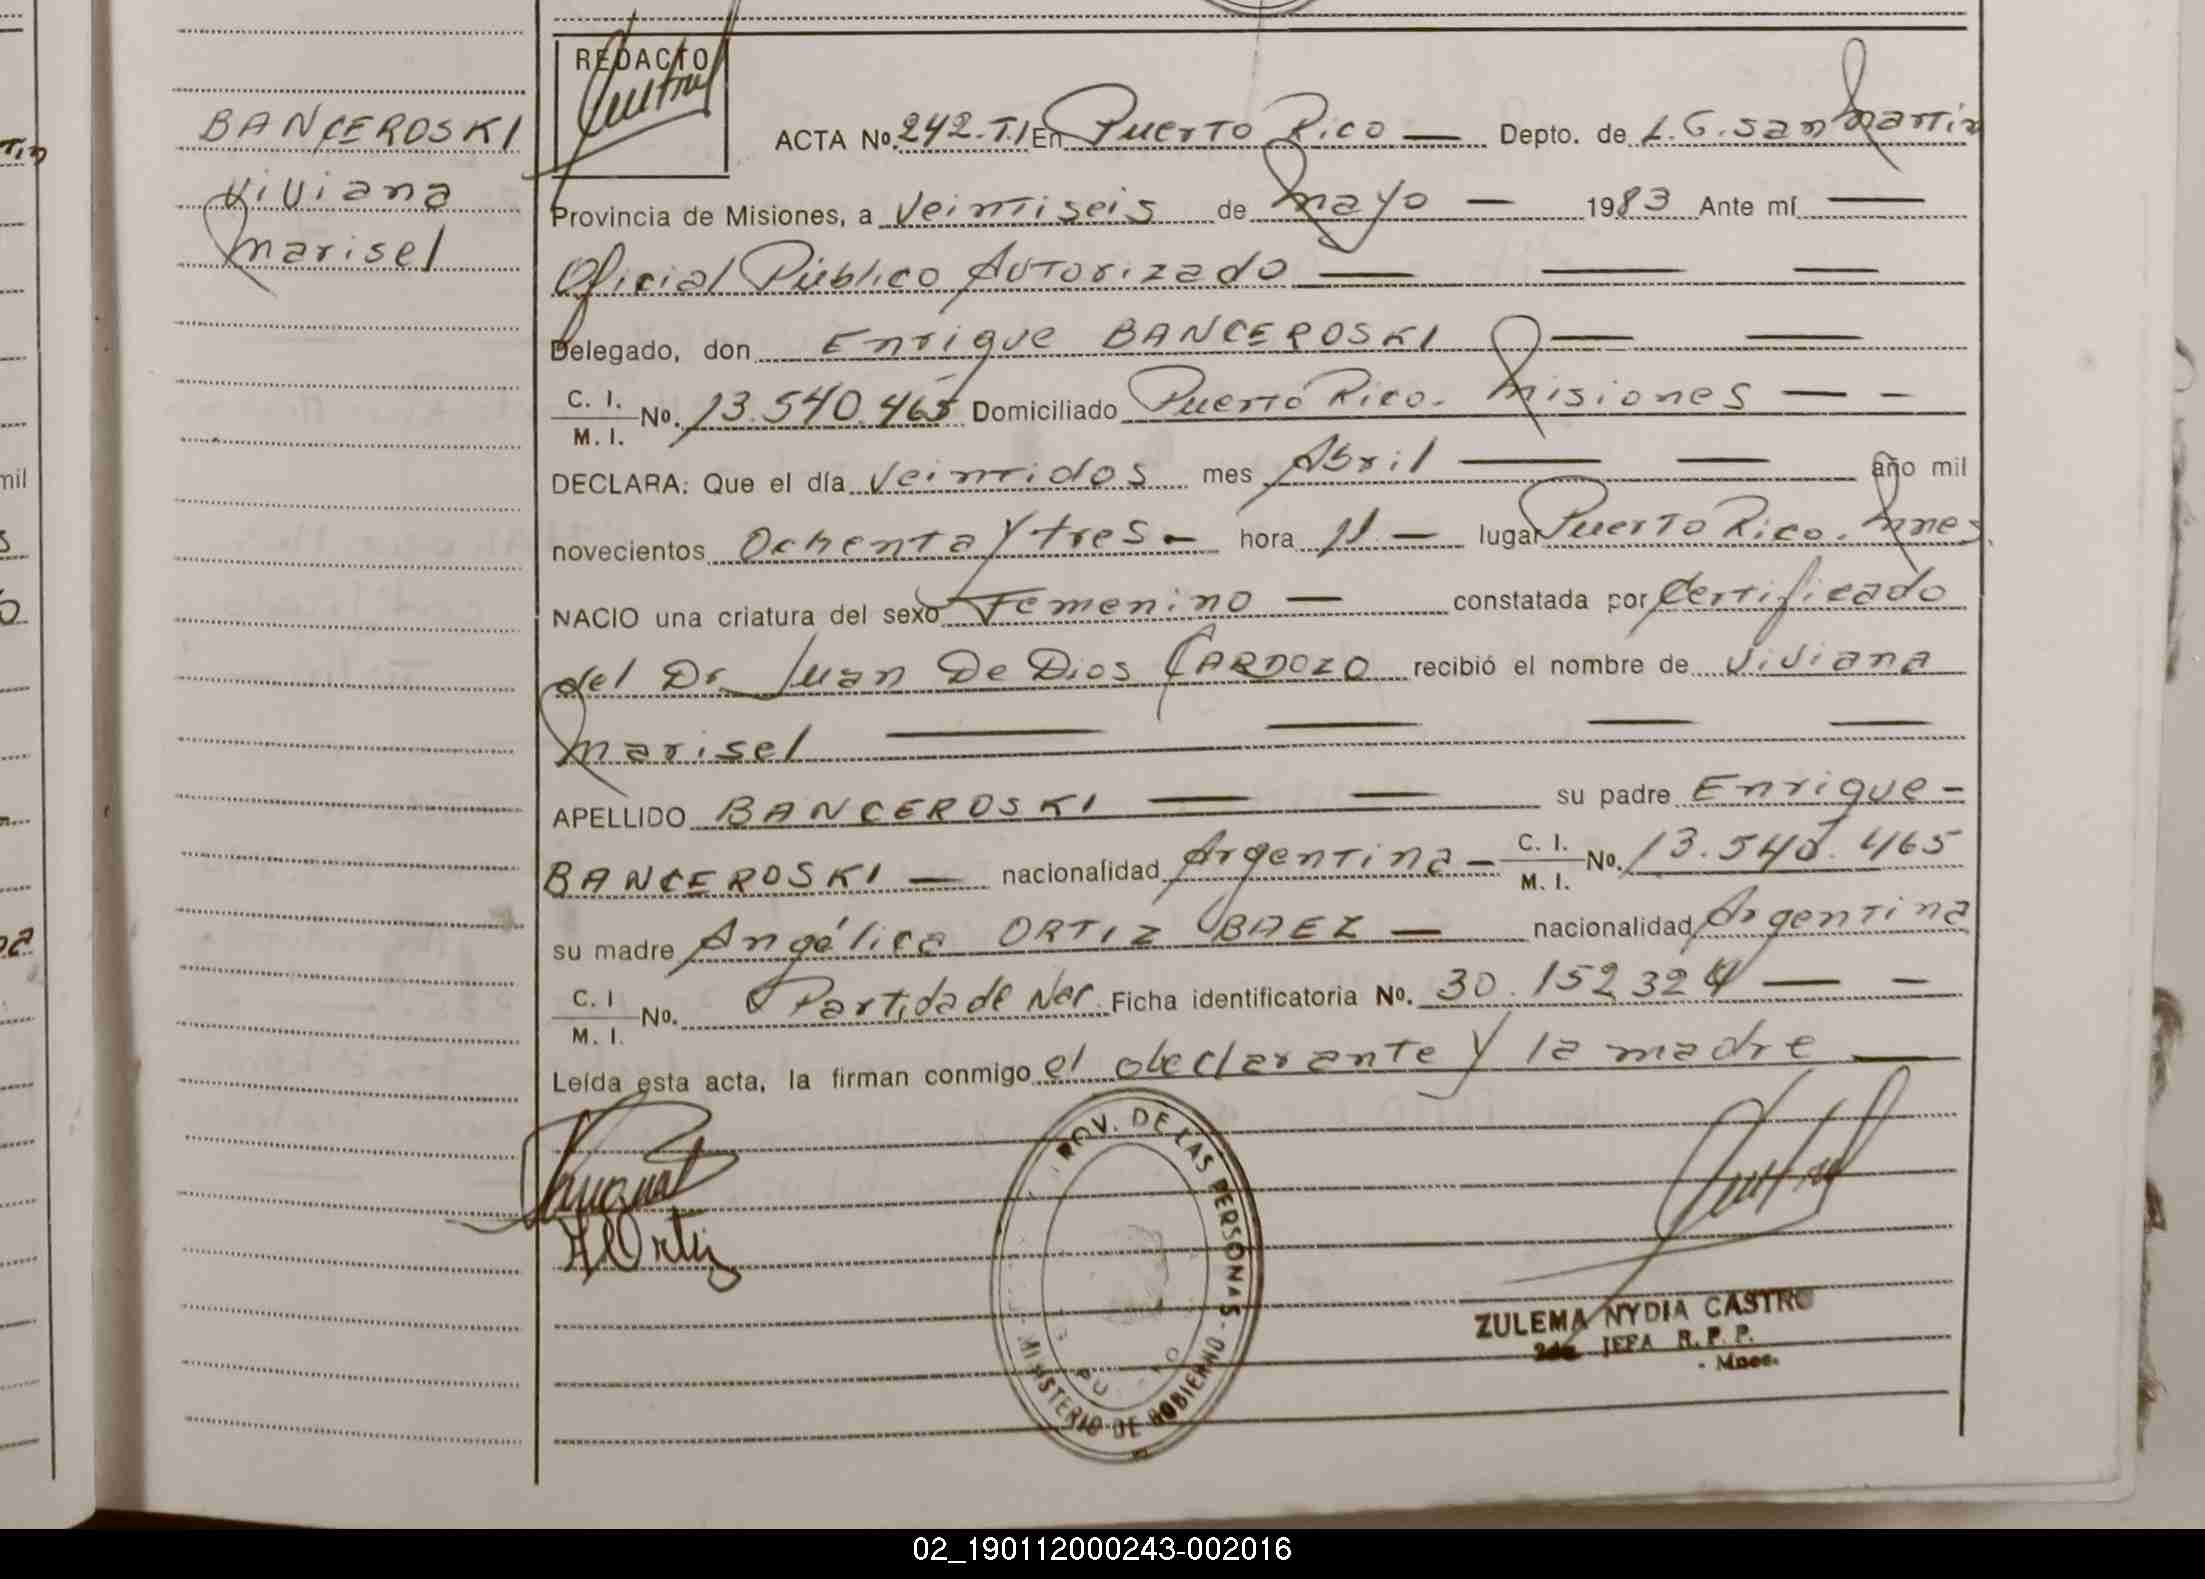 BANCEROSKI
Viviana
Marisel
REDACTO
ACTA No. 242.T.I En Puerto Rico — Depto. de L.G. San Martin
Provincia de Misiones, a Veintiseis de Mayo — 1983 Ante mí —
Oficial Público Autorizado — — —
Delegado, don Enrique BANCEROSKI — —
C. I.
M. I. No. 13.540.465 Domiciliado Puerto Rico. Misiones — -
DECLARA: Que el día Veintidos mes Abril — — año mil
novecientos Ochenta y tres - hora 11 — lugar Puerto Rico. Mnes.
NACIO una criatura del sexo Femenino — constatada por Certificado
del Dr. Juan De Dios CARDOZO recibió el nombre de Viviana
Marisel — — — —
APELLIDO BANCEROSKI — — su padre Enrique -
BANCEROSKI — nacionalidad Argentina - C. I.
M. I. No. 13.540.465
su madre Angélica ORTIZ BAEZ — nacionalidad Argentina
C. I
M. I. No. Partida de Nac. Ficha identificatoria No. 30.152324 — -
Leída esta acta, la firman conmigo el declarante y la madre —
A Ortiz
PROV. DE LAS PERSONAS - MINISTERIO DE GOBIERNO
ZULEMA NYDIA CASTRO
2da JEFA R. P. P.
- Mnes.
02_190112000243-002016
mil